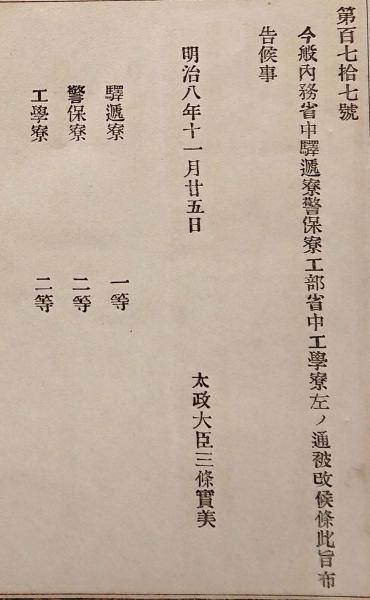 第百七拾七號
今般內務省中驛遞寮警保寮工部省中工學寮左ノ通被改候條此旨布
告候事
明治八年十一月廿五日
太政大臣三條實美
驛遞寮 一等
警保寮 二等
工學寮 二等